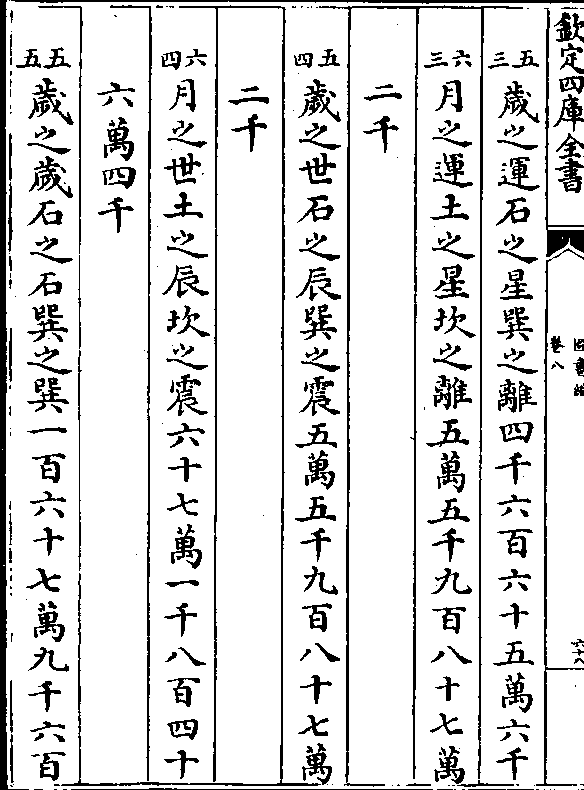 欽定四庫全書
卷八
六十八
五三歲之運石之星巽之離四千六百六十五萬六千
六三月之運土之星坎之離五萬五千九百八十七萬
二千
五四歲之世石之辰巽之震五萬五千九百八十七萬
二千
六四月之世土之辰坎之震六十七萬一千八百四十
六萬四千
五五歲之歲石之石巽之巽一百六十七萬九千六百